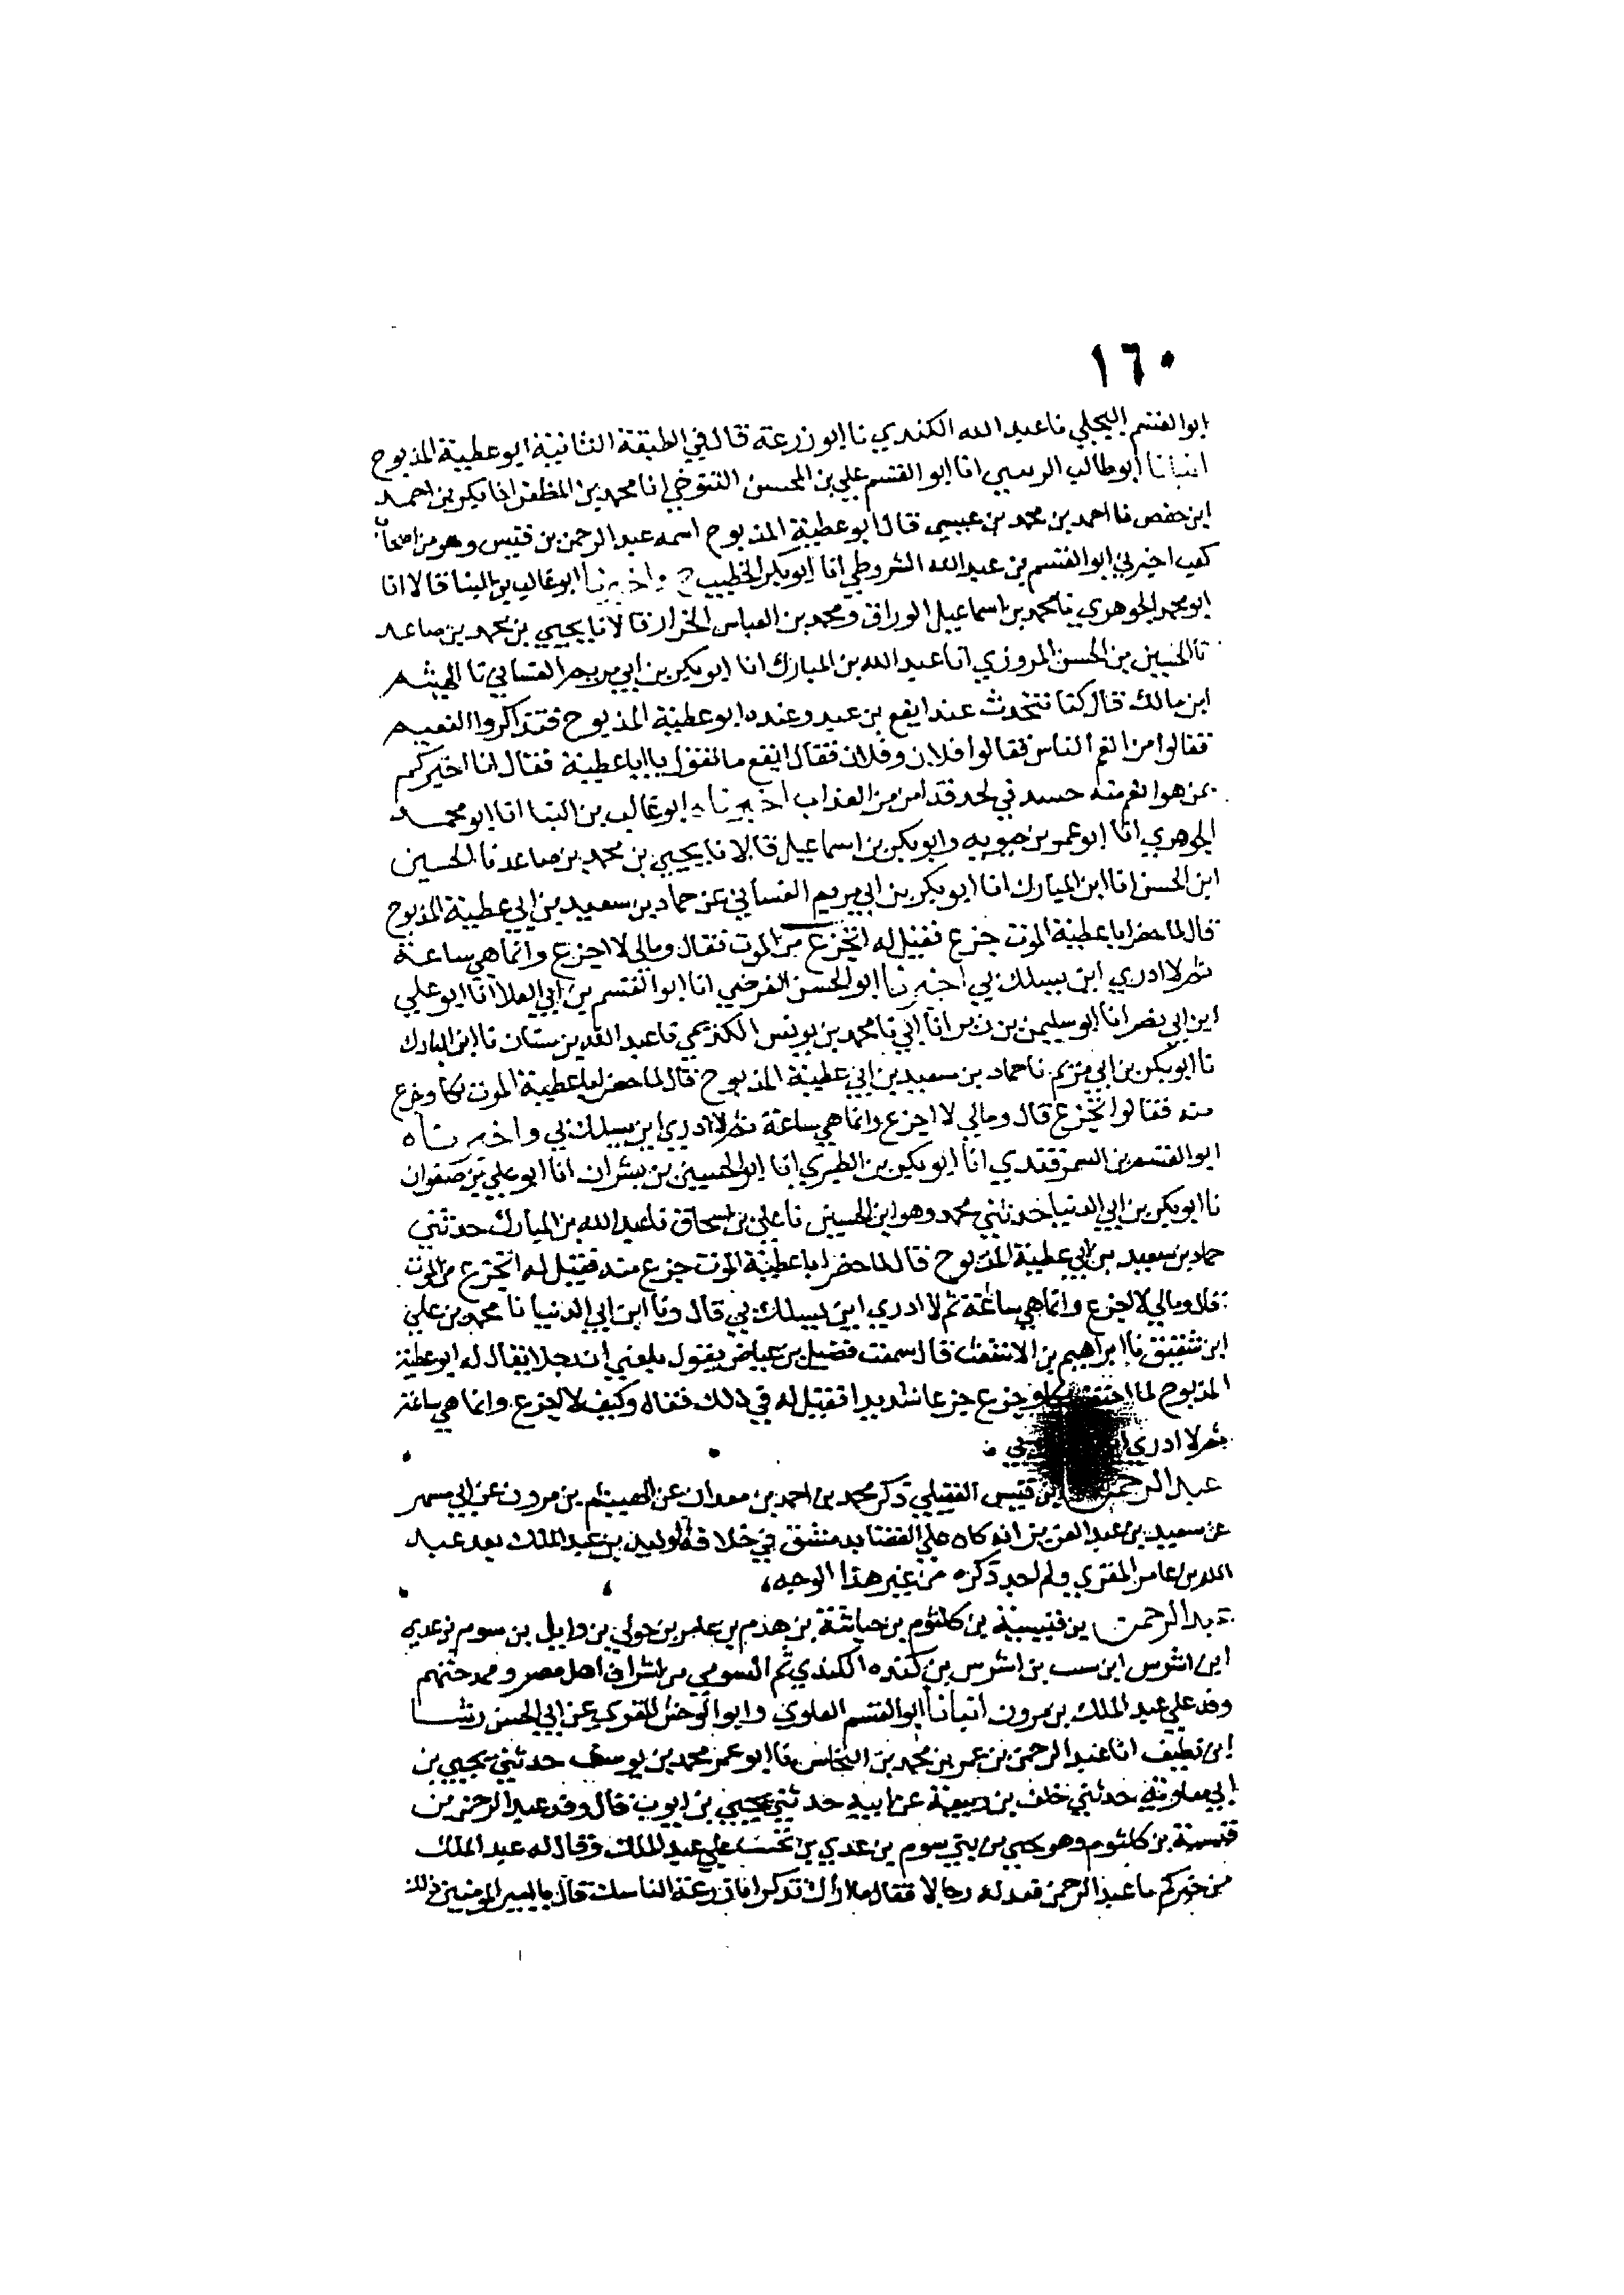 ١٦٠
ابو القسم البجلي نا عبد الله الكندي نا ابو زرعة قال في الطبقة الثانية ابو عطية المذبوح
انبانا ابو طالب الزينبي انا ابو القسم علي بن المحسن التنوخي انا محمد بن المظفر انا بكر بن احمد
ابن حفص نا احمد بن محمد بن عيسى قال ابو عطية المذبوح اسمه عبد الرحمن بن قيس وهو من اصحاب
كعب اخبرني ابو القسم بن عبد الله الشروطي انا ابو بكر الخطيب ح واخبرنا ابو غالب بن البنا قالا انا
ابو محمد الجوهري نا محمد بن اسماعيل الوراق ومحمد بن العباس الخزاز قالا نا يحيى بن محمد بن صاعد
نا الحسين بن الحسن المروزي انا عبد الله بن المبارك انا ابو بكر بن ابي مريم الغساني نا الهيثم
ابن مالك قال كنا نتحدث عند ايفع بن عبد وعنده ابو عطية المذبوح فتذاكروا النعيم
فقالوا من انعم الناس فقالوا فلان وفلان فقال ايفع ما تقول يا ابا عطية فقال انا اخبركم
بمن هو انعم منه جسد في لحد قد امن من العذاب اخبرناه ابو غالب بن البنا انا ابو محمد
الجوهري انا ابو عمر بن حيويه وابو بكر بن اسماعيل قالا نا يحيى بن محمد بن صاعد نا الحسين
ابن الحسن انا ابن المبارك انا ابو بكر بن ابي مريم الغساني عن حماد بن سعيد بن ابي عطية المذبوح
قال لما حضر ابا عطية الموت جزع فقيل له اتجزع من الموت فقال ومالي لا اجزع وانما هي ساعة
ثم لا ادري اين يسلك بي اخبرنا ابو الحسن الفرضي انا ابو القسم بن ابي العلا انا ابو علي
ابن ابي نصر انا ابو سليمن بن زبر انا ابي نا محمد بن يونس الكديمي نا عبد الله بن سنان نا ابن المبارك
نا ابو بكر بن ابي مريم نا حماد بن سعيد بن ابي عطية المذبوح قال لما حضر ابا عطية الموت بكا وجزع
منه فقالوا اتجزع قال ومالي لا اجزع وانما هي ساعة ثم لا ادري اين يسلك بي واخبرناه
ابو القسم بن السمرقندي انا ابو بكر بن الطبري انا ابو الحسين بن بشران انا ابو علي بن صفوان
نا ابو بكر بن ابي الدنيا حدثني محمد وهو ابن الحسين نا علي بن اسحاق نا عبد الله بن المبارك حدثني
حماد بن سعيد بن ابي عطية المذبوح قال لما حضر ابا عطية الموت جزع منه فقيل له اتجزع من الموت
قال ومالي لا اجزع وانما هي ساعة ثم لا ادري اين يسلك بي قال ونا ابن ابي الدنيا نا محمد بن علي
ابن شقيق نا ابراهيم بن الاشعث قال سمعت فضيل بن عياض يقول بلغني ان رجلا يقال له ابو عطية
المذبوح لما وجزع جزعا شديدا فقيل له في ذلك فقال وكيف لا اجزع وانما هي ساعة
ثم لا ادري بي
عبد الرحمن بن قيس العقيلي ذكر محمد بن احمد بن معدان عن الهيثم بن مرون عن ابي مسهر
عن سعيد بن عبد العزيز انه كان علي القضا بدمشق في خلافة الوليد بن عبد الملك بعد عبد
الله بن عامر المقري ولم اجد ذكره من غير هذا الوجه
عبد الرحمن بن قتيبة بن كلثوم بن حباشة بن هدم بن عامر بن خولي بن وايل بن سوم بن عدي
ابن اشرس ابن شبيب بن اشرس بن كنده الكندي ثم السومي من اشراف اهل مصر وممدحيهم
وفد علي عبد الملك بن مرون انبانا ابو القسم العلوي وابو الوحش المقري عن ابي الحسن رشا
ابن نظيف انا عبد الرحمن بن عمر بن محمد بن النحاس نا ابو عمر محمد بن يوسف حدثني يحيى بن
ابي معاوية حدثني خلف بن ربيعة عن ابيه حدثني يحيى بن ايوب قال وفد عبد الرحمن بن
قتيبة بن كلثوم وهو من بني سوم بن عدي بن تجيب علي عبد الملك فقال له عبد الملك
من خيركم يا عبد الرحمن فعد له رجالا فقال ما اراك تذكر قال يا امير المومنين ذلك